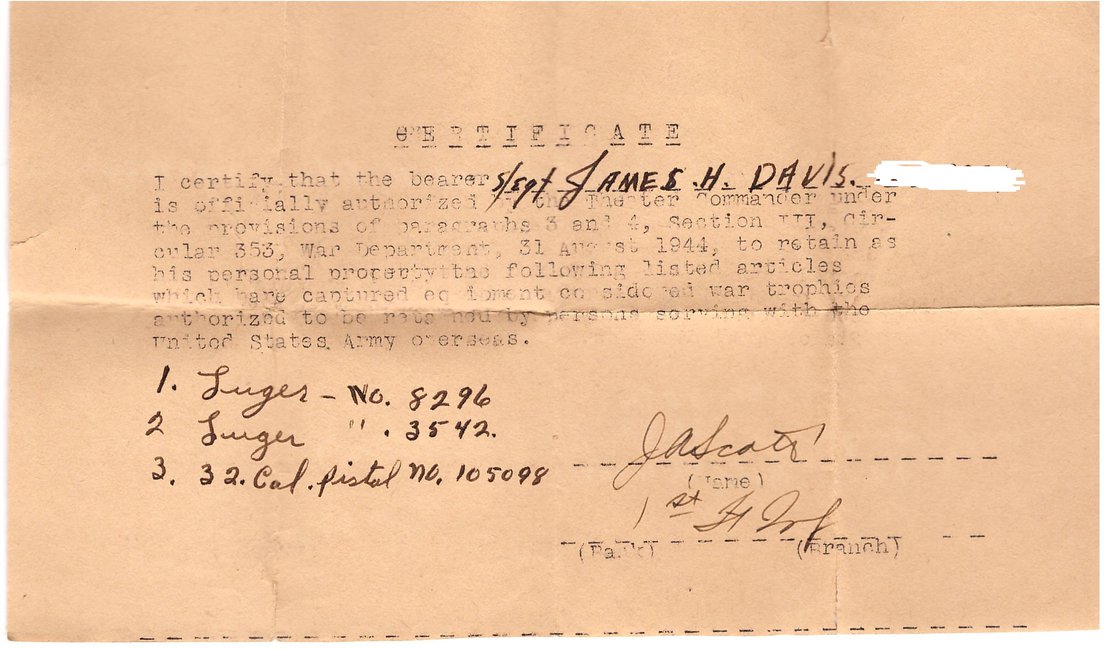 C E R T I F I C A T E
I certify that the bearer S/Sgt JAMES H. DAVIS.
is officially authorized by the Theater Commander under
the provisions of paragraphs 3 and 4, Section III, Cir-
cular 353, War Department, 31 August 1944, to retain as
his personal property the following listed articles
which are captured equipment considered war trophies
authorized to be retained by persons serving with the
United States Army overseas.
1. Luger - No. 8296
2 Luger " . 3542.
3. 32. Cal. pistol no. 105098
JAScott
(Name)
1st
(Rank) (Branch)